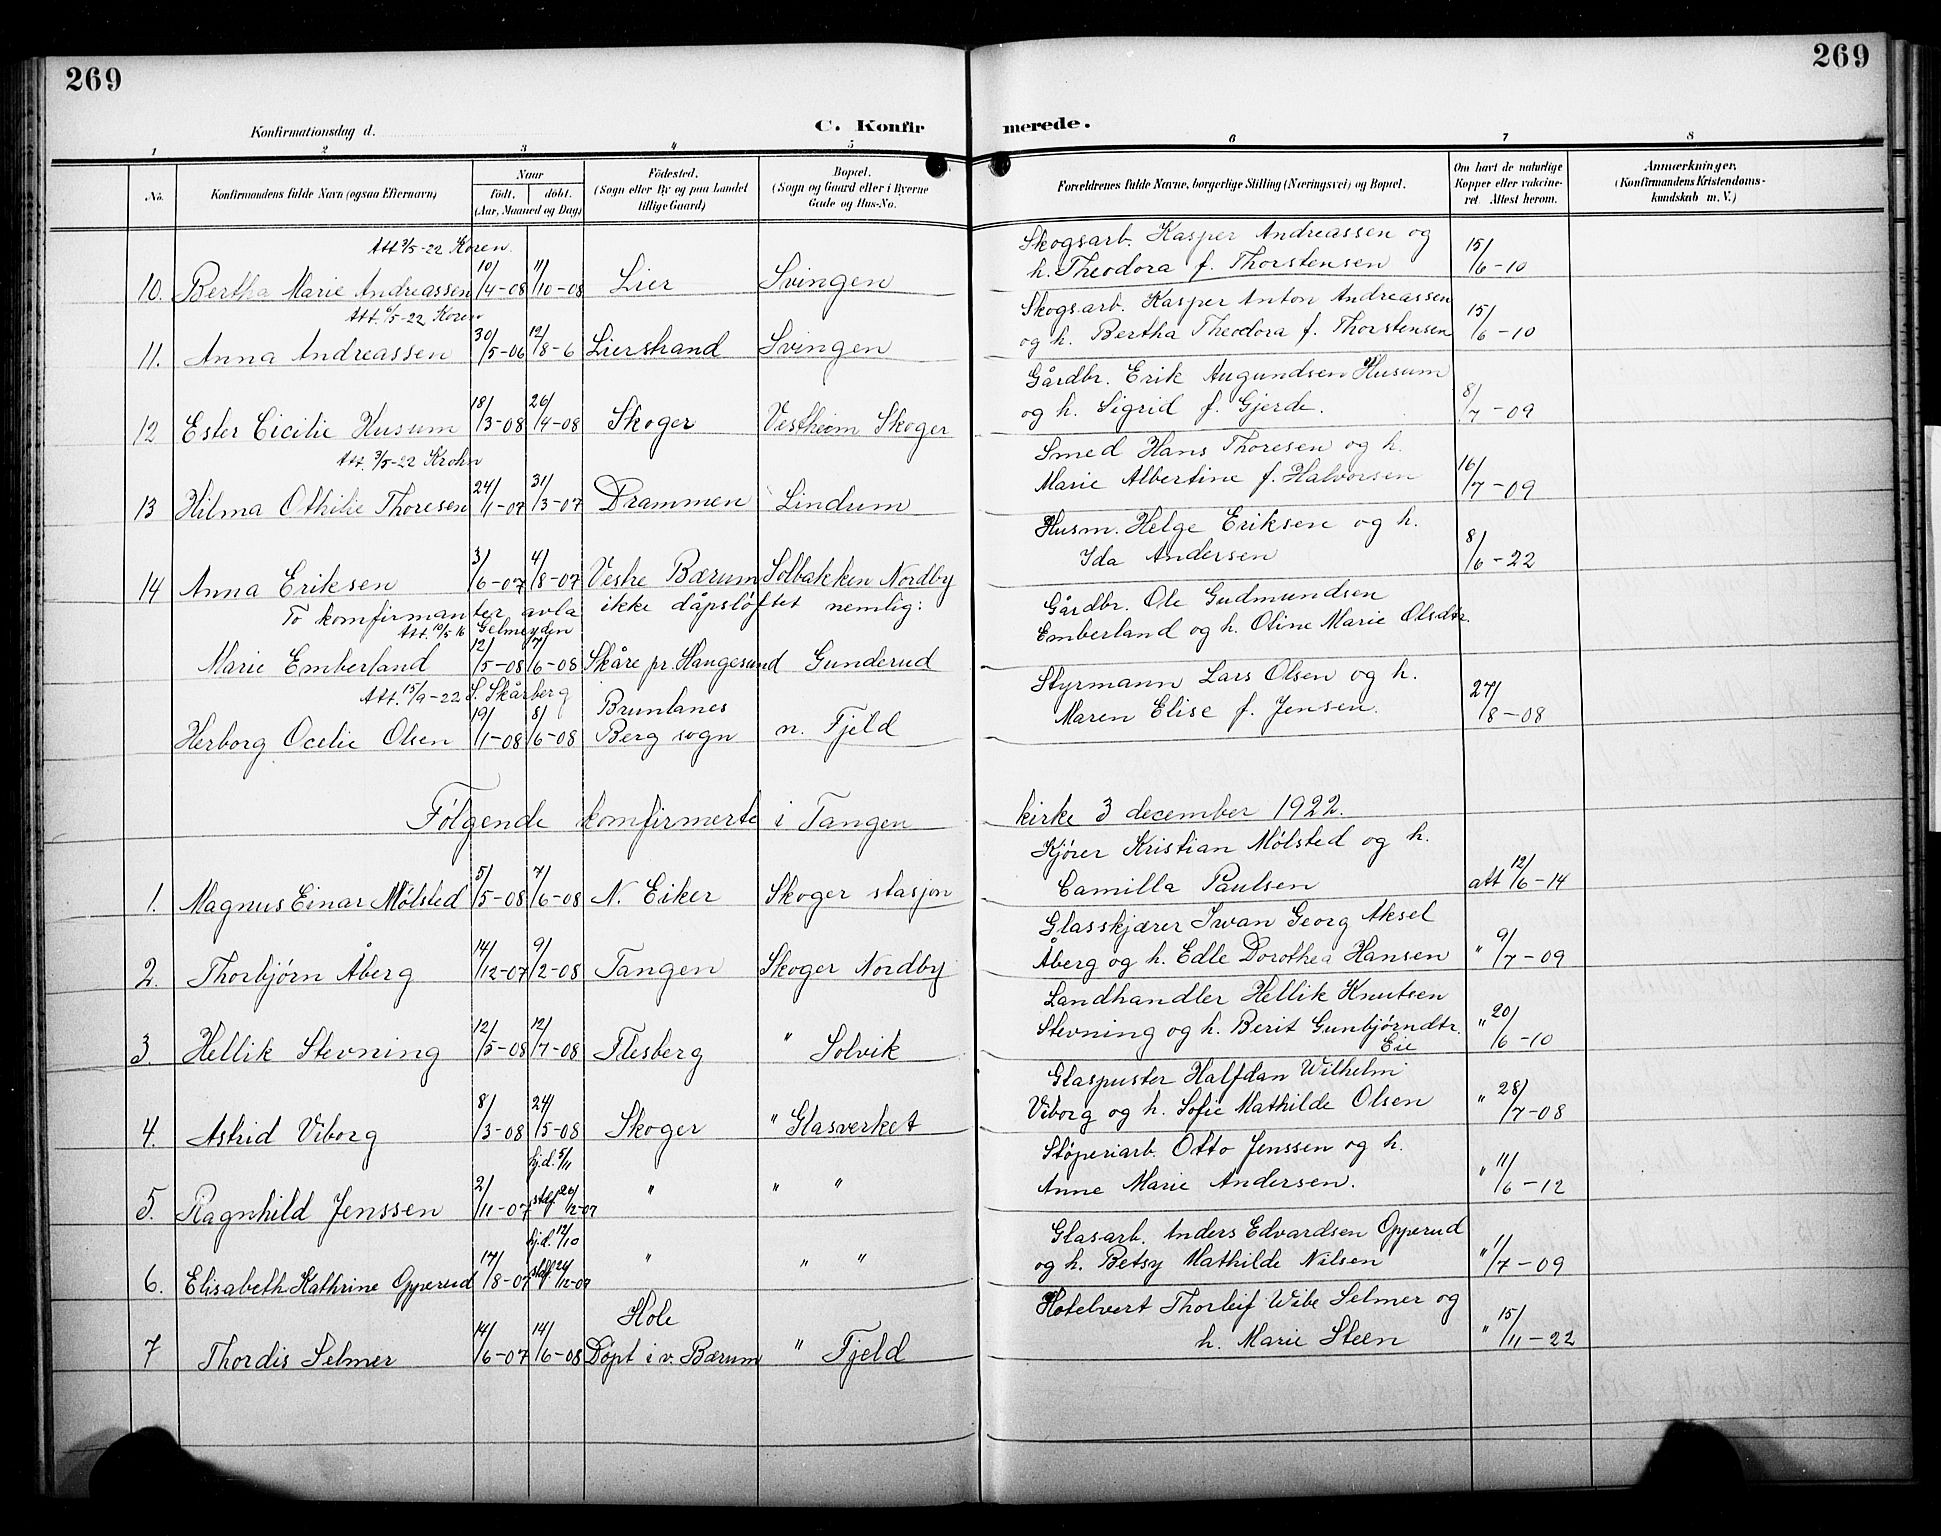 269
269
Konfirmationsdag d.
C. Konfirmerede.
1 2 3 4 5 6 7 8
No. Konfirmandens fulde Navn (ogsaa Efternavn) Naar født, døbt. (Aar, Maaned og Dag) Fødested. (Sogn eller By og paa Landet tillige Gaard) Bopæl. (Sogn og Gaard eller i Byerne Gade og Hus-No. Forældrenes fulde Navne, borgerlige Stilling (Næringsvei) og Bopæl. Om havt de naturlige Kopper eller vakcineret. Attest herom. Anmærkninger. (Konfirmandens Kristendomskundskab m. V.)
Att. 3/5-22 Koren.
Skogsarb. Kasper Andreassen og
10. Bertha Marie Andreassen 10/4-08 11/10-08 Lier Svingen h. Theodora f. Thorstensen 15/6-10
Att. 6/5-22 Koren
Skogsarb. Kasper Anton Andreassen
11. Anna Andreassen 30/5-06 12/8-6 Lierstrand Svingen og h. Bertha Theodora f. Thorstensen 15/6-10
Gårdbr. Erik Augundsen Husum
12 Ester Cicilie Husum 18/3-08 26/4-08 Skoger Vestheim Skoger og h. Sigrid f. Gjerde. 8/7-09
Att. 3/5-22 Krohn
Smed Hans Thoresen og h.
13 Hilma Othilie Thoresen 24/1-07 31/3-07 Drammen Lindum Marie Albertine f. Halvorsen 16/7-09
Husm. Helge Eriksen og h.
14 Anna Eriksen 3/6-07 4/8-07 Vestre Bærum Solbakken Nordby Ida Andersen 8/6-22
To komfirmanter avla ikke dåpsløftet nemlig:
Att. 10/5 16
Gårdbr. Ole Gudmundsen
Marie Emberland 12/5-08 7/6-08 Skåre pr. Haugesund Gunderud Emberland og h. Oline Marie Olsdtr.
Att. 15/9-22 S. Skårberg
Styrmann Lars Olsen og h.
Herborg Ocelie Olsen 19/1-08 8/6-08 Brunlanes Berg sogn n. Fjeld Maren Elise f. Jensen. 27/8-08
Følgende komfirmerte i Tangen kirke 3 december 1922.
Kjører Kristian Mølsted og h.
1. Magnus Einar Mølsted 5/5-08 7/6-08 N. Eiker Skoger stasjon Camilla Paulsen att 12/6-14
Glasskjærer Iwan Georg Aksel
2. Thorbjørn Åberg 14/12-07 9/2-08 Tangen Skoger Nordby Åberg og h. Edle Dorothea Hansen " 9/7-09
Landhandler Hellik Knutsen
3. Hellik Stevning 12/5-08 12/7-08 Flesberg " Solvik Stevning og h. Berit Gunbjørndtr. Eie " 20/6-10
Glaspuster Halfdan Wilhelm
4. Astrid Viborg 8/3-08 24/5-08 Skoger " Glasverket Viborg og h. Sofie Mathilde Olsen " 28/7-08
Støperiarb. Otto Jenssen og h.
5. Ragnhild Jenssen 2/11-07 hj.d. 5/11 stdf 26/12-07 " " " Anne Marie Andersen. " 11/6-12
Glasarb. Anders Edvardsen Opperud
6. Elisabeth Kathrine Opperud 17/8-07 hj.d. 12/10 stdf 26/12-07 " " " og h. Betsy Mathilde Nilsen " 1/7-09
Hotelvert Thorleif Wibe Selmer og
7 Thordis Selmer 14/6-07 14/6-08 Hole Døpt i v. Bærum " Fjeld h. Marie Steen " 15/11-22